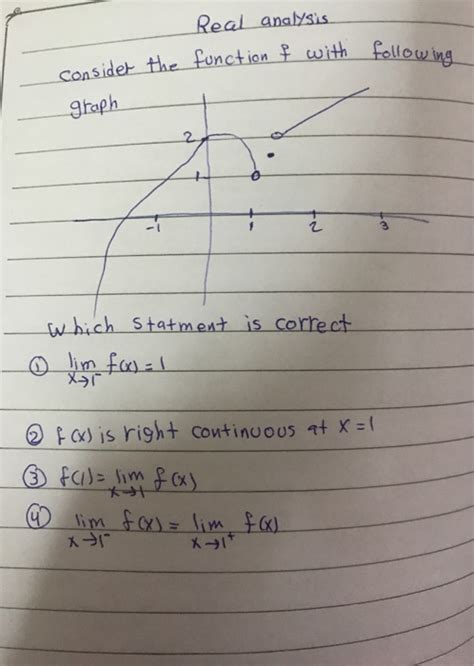 Real analysis
Consider the function f with following
graph
2
1
-1 1 2 3
Which statment is correct
① lim f(x) = 1
x→1⁻
② f(x) is right continuous at x = 1
③ f(1) = lim f(x)
x→1
④ lim f(x) = lim f(x)
x→1⁻ x→1⁺